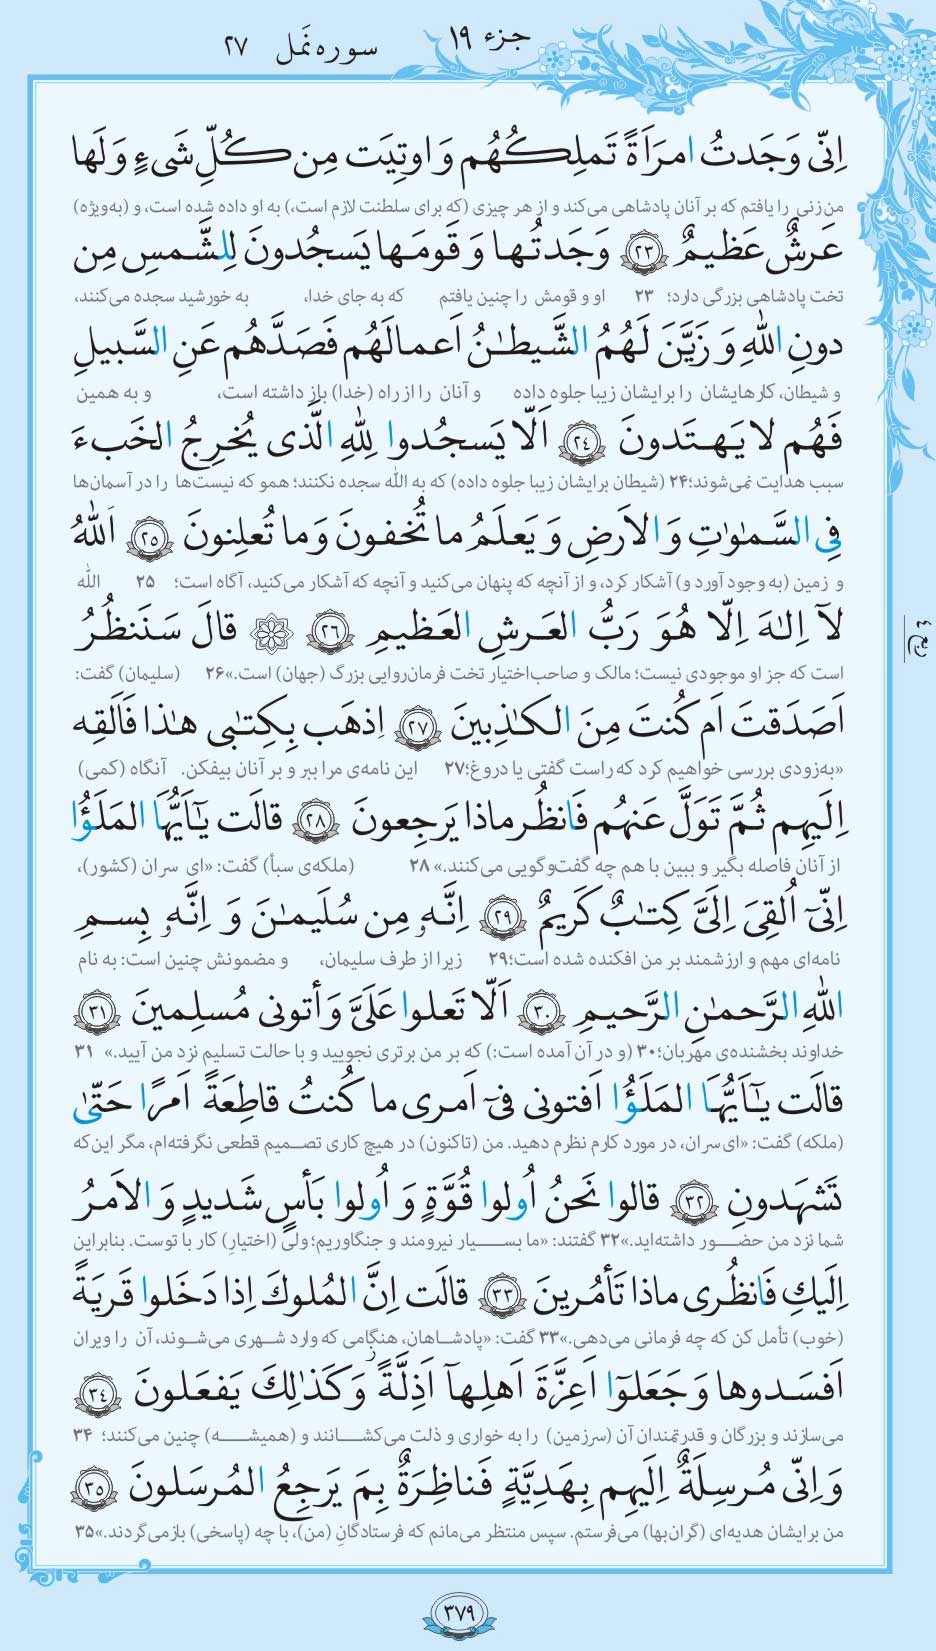 جزء ۱۹ سوره نَمل ۲۷
اِنّی وَجَدتُ امرَاَةً تَملِكُهُم وَ اوتِیَت مِن كُلِّ شَیءٍ وَ لَها
من زنی را یافتم که بر آنان پادشاهی می‌کند و از هر چیزی (که برای سلطنت لازم است،) به او داده شده است، و (به‌ویژه)
عَرشٌ عَظیمٌ ﴿۲۳﴾ وَجَدتُها وَ قَومَها یَسجُدونَ لِلشَّمسِ مِن
تخت پادشاهی بزرگی دارد؛ ۲۳ او و قومش را چنین یافتم که به جای خدا، به خورشید سجده می‌کنند،
دونِ اللّٰهِ وَ زَیَّنَ لَهُمُ الشَّیطٰنُ اَعمالَهُم فَصَدَّهُم عَنِ السَّبیلِ
و شیطان، کارهایشان را برایشان زیبا جلوه داده و آنان را از راه (خدا) باز داشته است، و به همین
فَهُم لا یَهتَدونَ ﴿۲٤﴾ اَلّا یَسجُدوا لِلّٰهِ الَّذی یُخرِجُ الخَبءَ
سبب هدایت نمی‌شوند؛۲۴ (شیطان برایشان زیبا جلوه داده) که به الله سجده نکنند؛ همو که نیست‌ها را در آسمان‌ها
فِی السَّمٰوٰتِ وَ الاَرضِ وَ یَعلَمُ ما تُخفونَ وَ ما تُعلِنونَ ﴿۲٥﴾ اَللّٰهُ
و زمین (به وجود آورد و) آشکار کرد، و از آنچه که پنهان می‌کنید و آنچه که آشکار می‌کنید، آگاه است؛ ۲۵ الله
لآ اِلٰهَ اِلّا هُوَ رَبُّ العَرشِ العَظیمِ ﴿۲٦﴾ ۞ قالَ سَنَنظُرُ
است که جز او موجودی نیست؛ مالک و صاحب‌اختیار تخت فرمان‌روایی بزرگ (جهان) است.» ۲۶ (سلیمان) گفت:
ربع ٤
اَصَدَقتَ اَم كُنتَ مِنَ الكٰذِبینَ ﴿۲۷﴾ اِذهَب بِكِتٰبی هٰذا فَاَلقِه
«به‌زودی بررسی خواهیم کرد که راست گفتی یا دروغ؛۲۷ این نامه‌ی مرا ببر و بر آنان بیفکن. آنگاه (کمی)
اِلَیهِم ثُمَّ تَوَلَّ عَنهُم فَانظُر ماذا یَرجِعونَ ﴿۲۸﴾ قالَت یٰٓاَیُّهَا المَلَؤُا
از آنان فاصله بگیر و ببین با هم چه گفت‌وگویی می‌کنند.» ۲۸ (ملکه‌ی سبأ) گفت: «ای سران (کشور)،
اِنّیٓ اُلقِیَ اِلَیَّ كِتٰبٌ كَریمٌ ﴿۲۹﴾ اِنَّهٗ مِن سُلَیمٰنَ وَ اِنَّهٗ بِسمِ
نامه‌ای مهم و ارزشمند بر من افکنده شده است؛۲۹ زیرا از طرف سلیمان، و مضمونش چنین است: به نام
اللّٰهِ الرَّحمٰنِ الرَّحیمِ ﴿۳۰﴾ اَلّا تَعلوا عَلَیَّ وَ أتونی مُسلِمینَ ﴿۳۱﴾
خداوند بخشنده‌ی مهربان؛۳۰ (و در آن آمده است:) که بر من برتری نجویید و با حالت تسلیم نزد من آیید.» ۳۱
قالَت یٰٓاَیُّهَا المَلَؤُا اَفتونی فیٓ اَمری ما كُنتُ قاطِعَةً اَمرًا حَتّیٰ
(ملکه) گفت: «ای سران، در مورد کارم نظرم دهید. من (تاکنون) در هیچ کاری تصمیم قطعی نگرفته‌ام، مگر این‌که
تَشهَدونِ ﴿۳۲﴾ قالوا نَحنُ اُولوا قُوَّةٍ وَ اُولوا بَأسٍ شَدیدٍ وَ الاَمرُ
شما نزد من حضور داشته‌اید.»۳۲ گفتند: «ما بسیار نیرومند و جنگاوریم؛ ولی (اختیارِ) کار با توست. بنابراین
اِلَیكِ فَانظُری ماذا تَأمُرینَ ﴿۳۳﴾ قالَت اِنَّ المُلوكَ اِذا دَخَلوا قَریَةً
(خوب) تأمل کن که چه فرمانی می‌دهی.»۳۳ گفت: «پادشاهان، هنگامی که وارد شهری می‌شوند، آن را ویران
اَفسَدوها وَ جَعَلوٓا اَعِزَّةَ اَهلِهآ اَذِلَّةً وَ كَذٰلِكَ یَفعَلونَ ﴿۳٤﴾
می‌سازند و بزرگان و قدرتمندان آن (سرزمین) را به خواری و ذلت می‌کشانند و (همیشه) چنین می‌کنند؛ ۳۴
وَ اِنّی مُرسِلَةٌ اِلَیهِم بِهَدِیَّةٍ فَناظِرَةٌ بِمَ یَرجِعُ المُرسَلونَ ﴿۳٥﴾
من برایشان هدیه‌ای (گران‌بها) می‌فرستم. سپس منتظر می‌مانم که فرستادگانِ (من)، با چه (پاسخی) بازمی‌گردند.»۳۵
۳۷۹